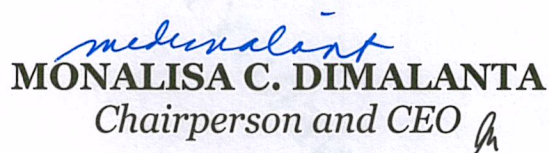 MONALISA C. DIMALANTA
Chairperson and CEO